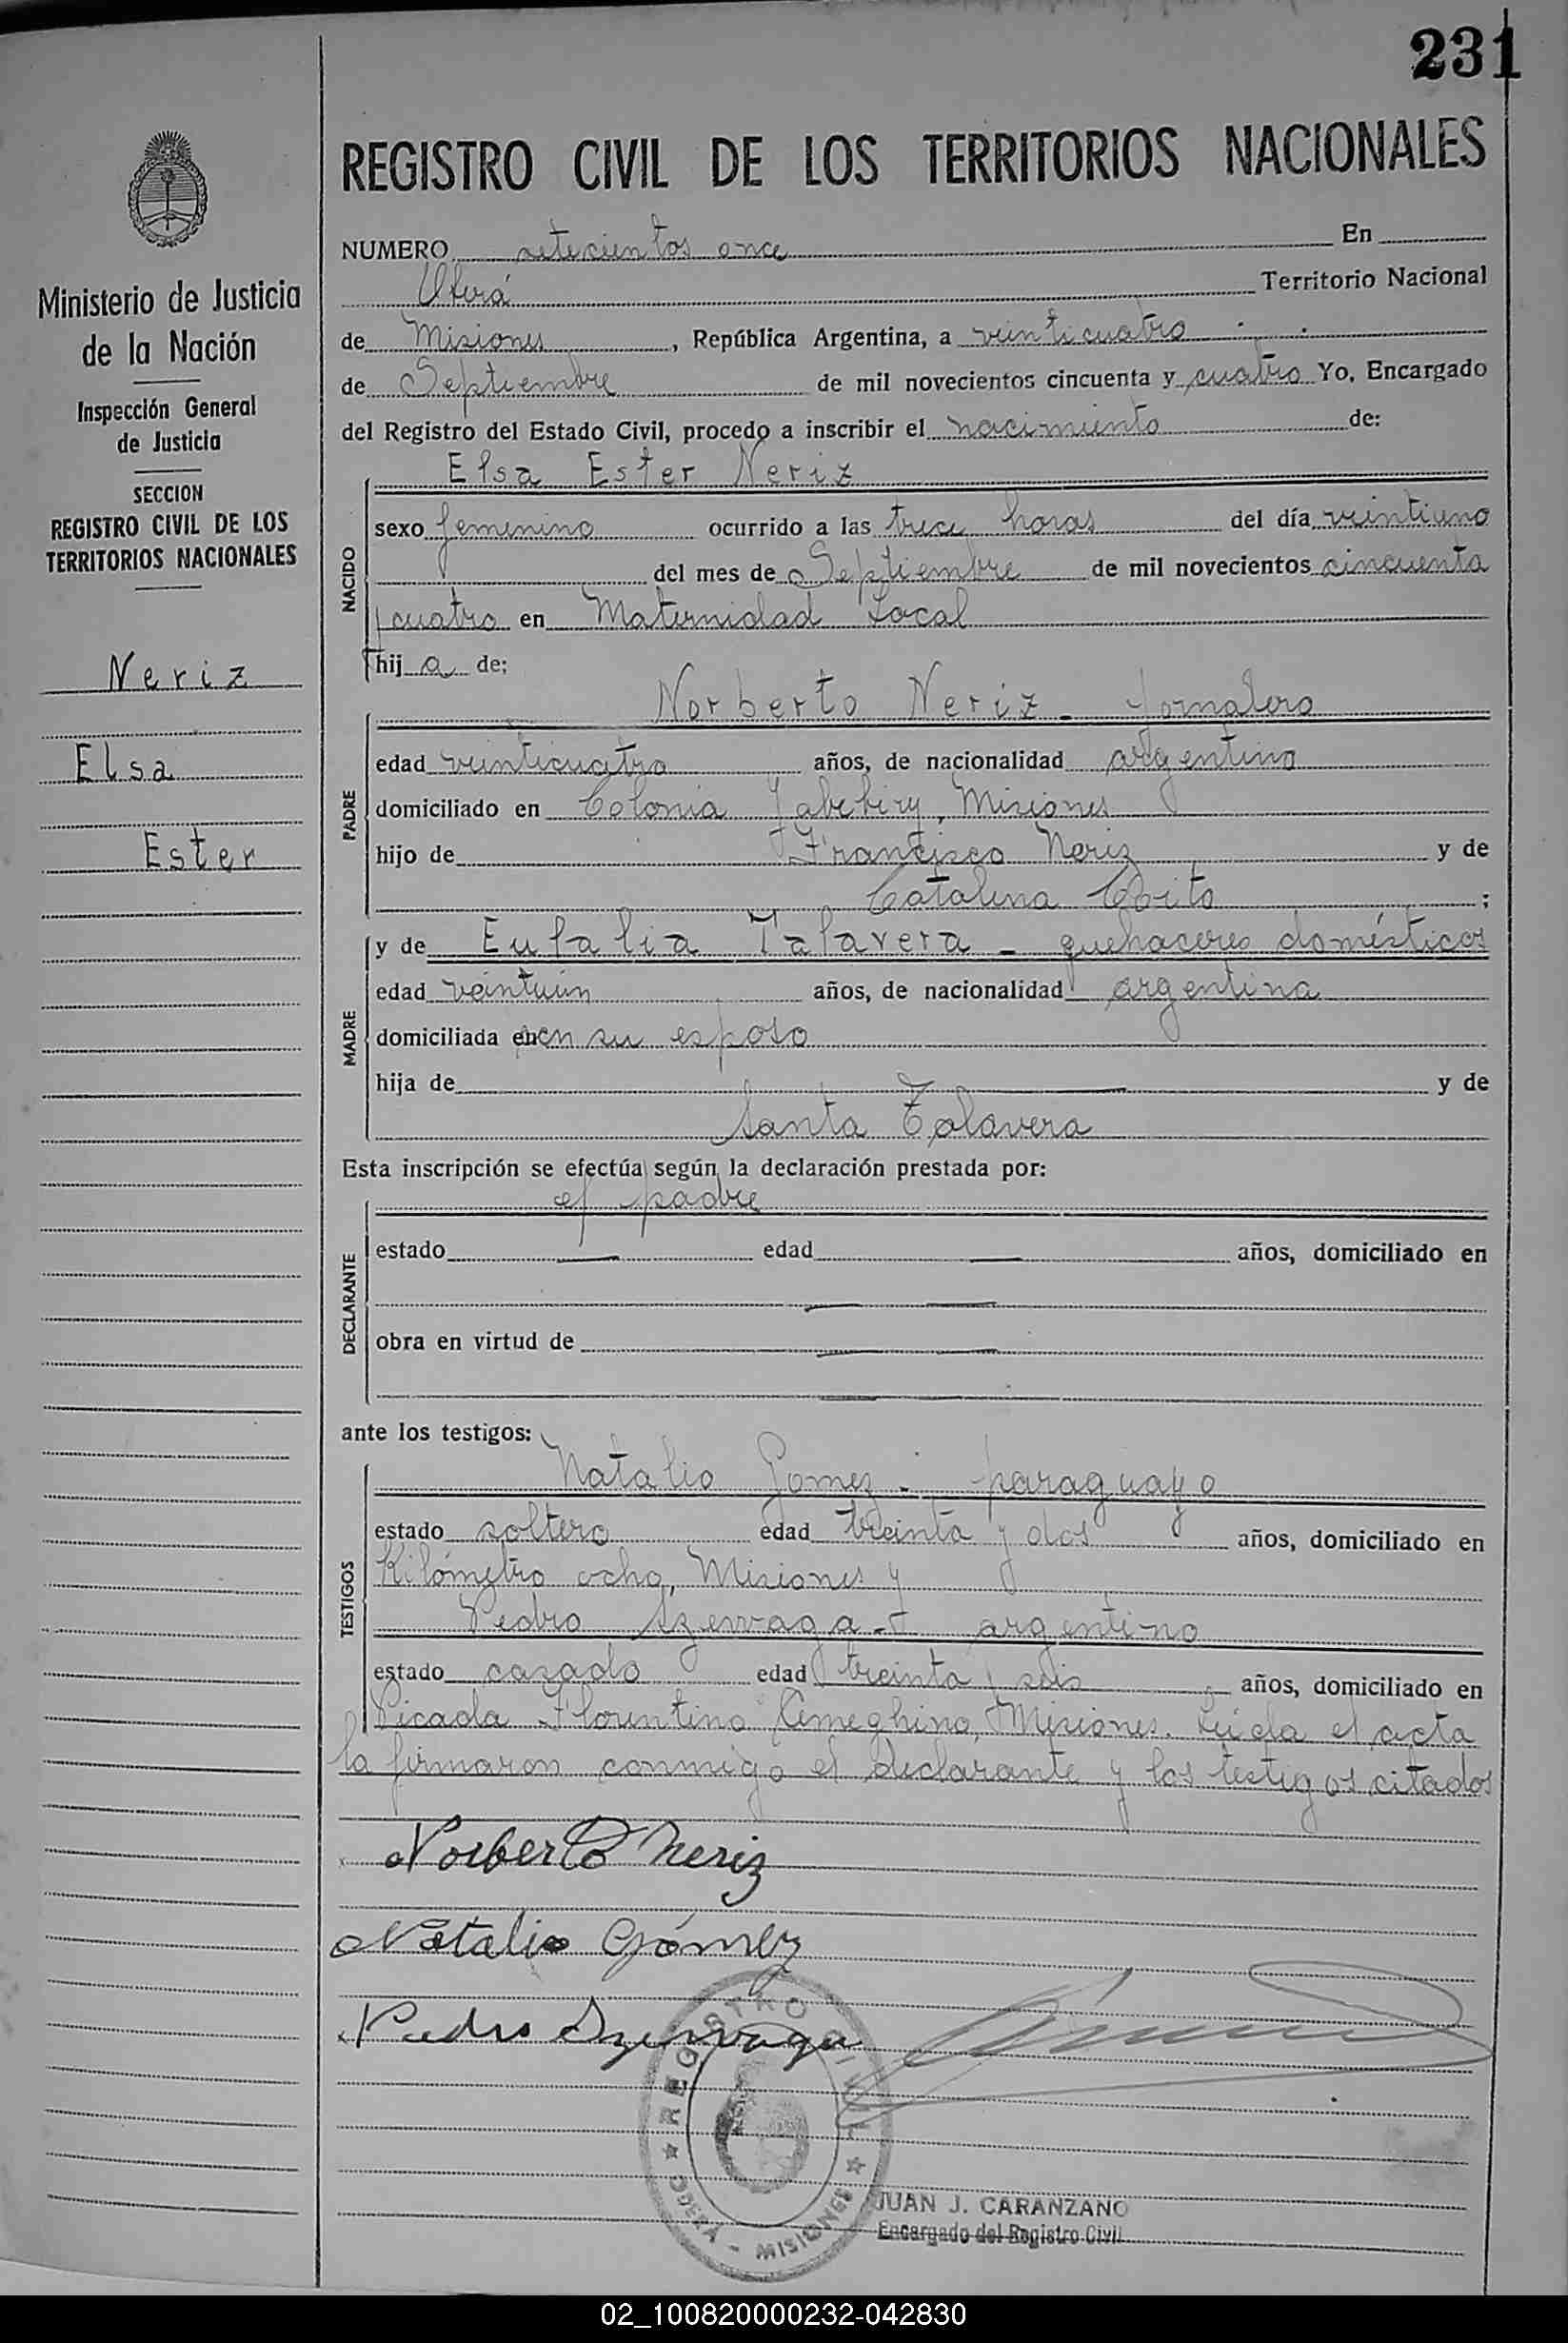 231
REGISTRO CIVIL DE LOS TERRITORIOS NACIONALES
NUMERO setecientos once En
Oberá Territorio Nacional
de Misiones, República Argentina, a veinticuatro
de Septiembre de mil novecientos cincuenta y cuatro Yo, Encargado
del Registro del Estado Civil, procedo a inscribir el nacimiento de:
NACIDO
Elsa Ester Neriz
sexo femenino ocurrido a las trece horas del día veintiuno
del mes de Septiembre de mil novecientos cincuenta
y cuatro en Maternidad Local
hij a de:
PADRE
Norberto Neriz - Jornalero
edad veinticuatro años, de nacionalidad argentino
domiciliado en Colonia Yabebiry, Misiones
hijo de Francisco Neriz y de
Catalina ;
MADRE
y de Eulalia Talavera - quehaceres domésticos
edad veintiún años, de nacionalidad argentina
domiciliada en su esposo
hija de y de
Santa Talavera
Esta inscripción se efectúa según la declaración prestada por:
DECLARANTE
el padre
estado edad años, domiciliado en
obra en virtud de
ante los testigos:
TESTIGOS
Natalio Gomez - paraguayo
estado soltero edad treinta y dos años, domiciliado en
Kilómetro ocho, Misiones y
Pedro - argentino
estado casado edad treinta y seis años, domiciliado en
Picada Florentino Ameghino, Misiones. Leida el acta
la firmaron conmigo el declarante y los testigos citados
Norberto Neriz
Natalio Gómez
Pedro
REGISTRO CIVIL
OBERÁ - MISIONES
JUAN J. CARANZANO
Encargado del Registro Civil
Ministerio de Justicia
de la Nación
Inspección General
de Justicia
SECCION
REGISTRO CIVIL DE LOS
TERRITORIOS NACIONALES
Neriz
Elsa
Ester
02_100820000232-042830